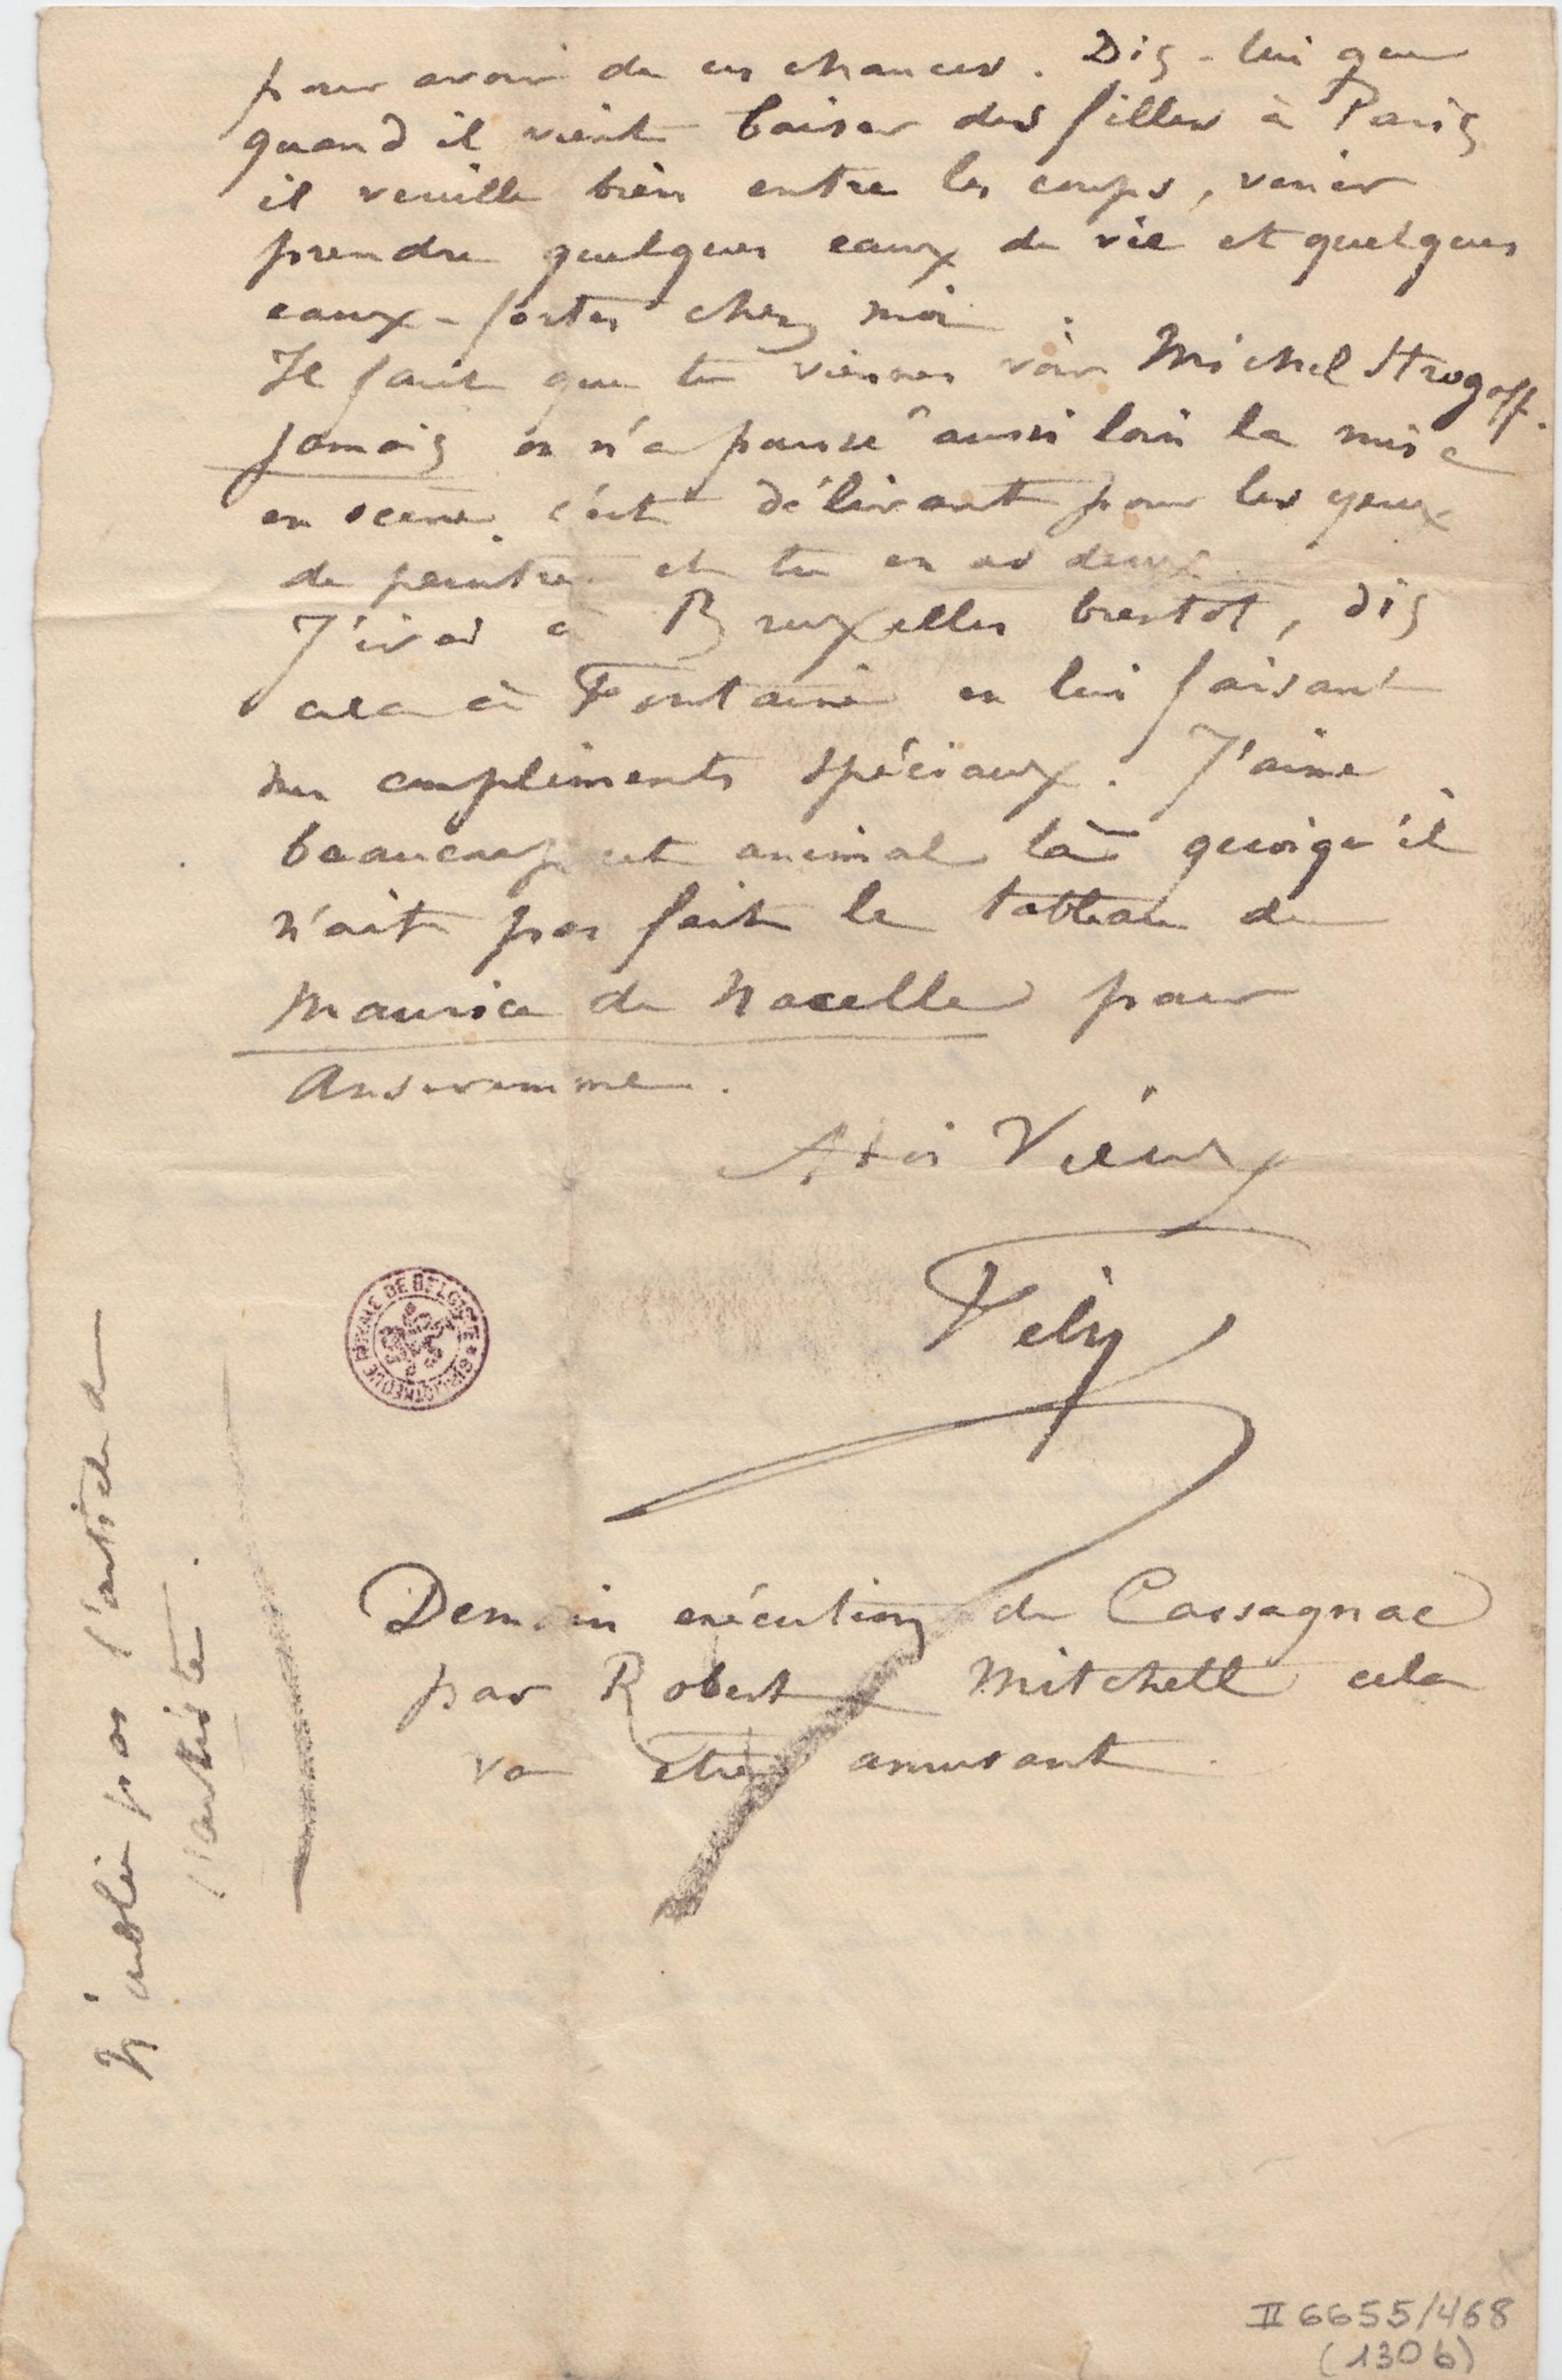 pour avoir de ces chances. Dis-lui que
quand il vient baiser des filles à Paris
il veuille bien entre les coups, venir
prendre quelques eaux de vie et quelques
eaux-fortes chez moi.
Il faut que tu viennes voir Michel Strogoff.
Jamais on n'a poussé aussi loin la mise
en scène. c'est délirant pour les yeux
de peintre. et tu en as deux.
J'irai à Bruxelles bientôt, dis
cela à Fontaine en lui faisant
mes compliments spéciaux. J'aime
beaucoup cet animal là quoiqu'il
n'ait pas fait le tableau de
Maurice de Nacelle pour
Anseremme.
A toi Vieux
Fély
Demain exécution de Cassagnac
par Robert Mitchell cela
va être amusant.
N'oublie pas l'article de
l'artiste.
BIBLIOTHEQUE ROYALE DE BELGIQUE
II 6655/468
(130 b)